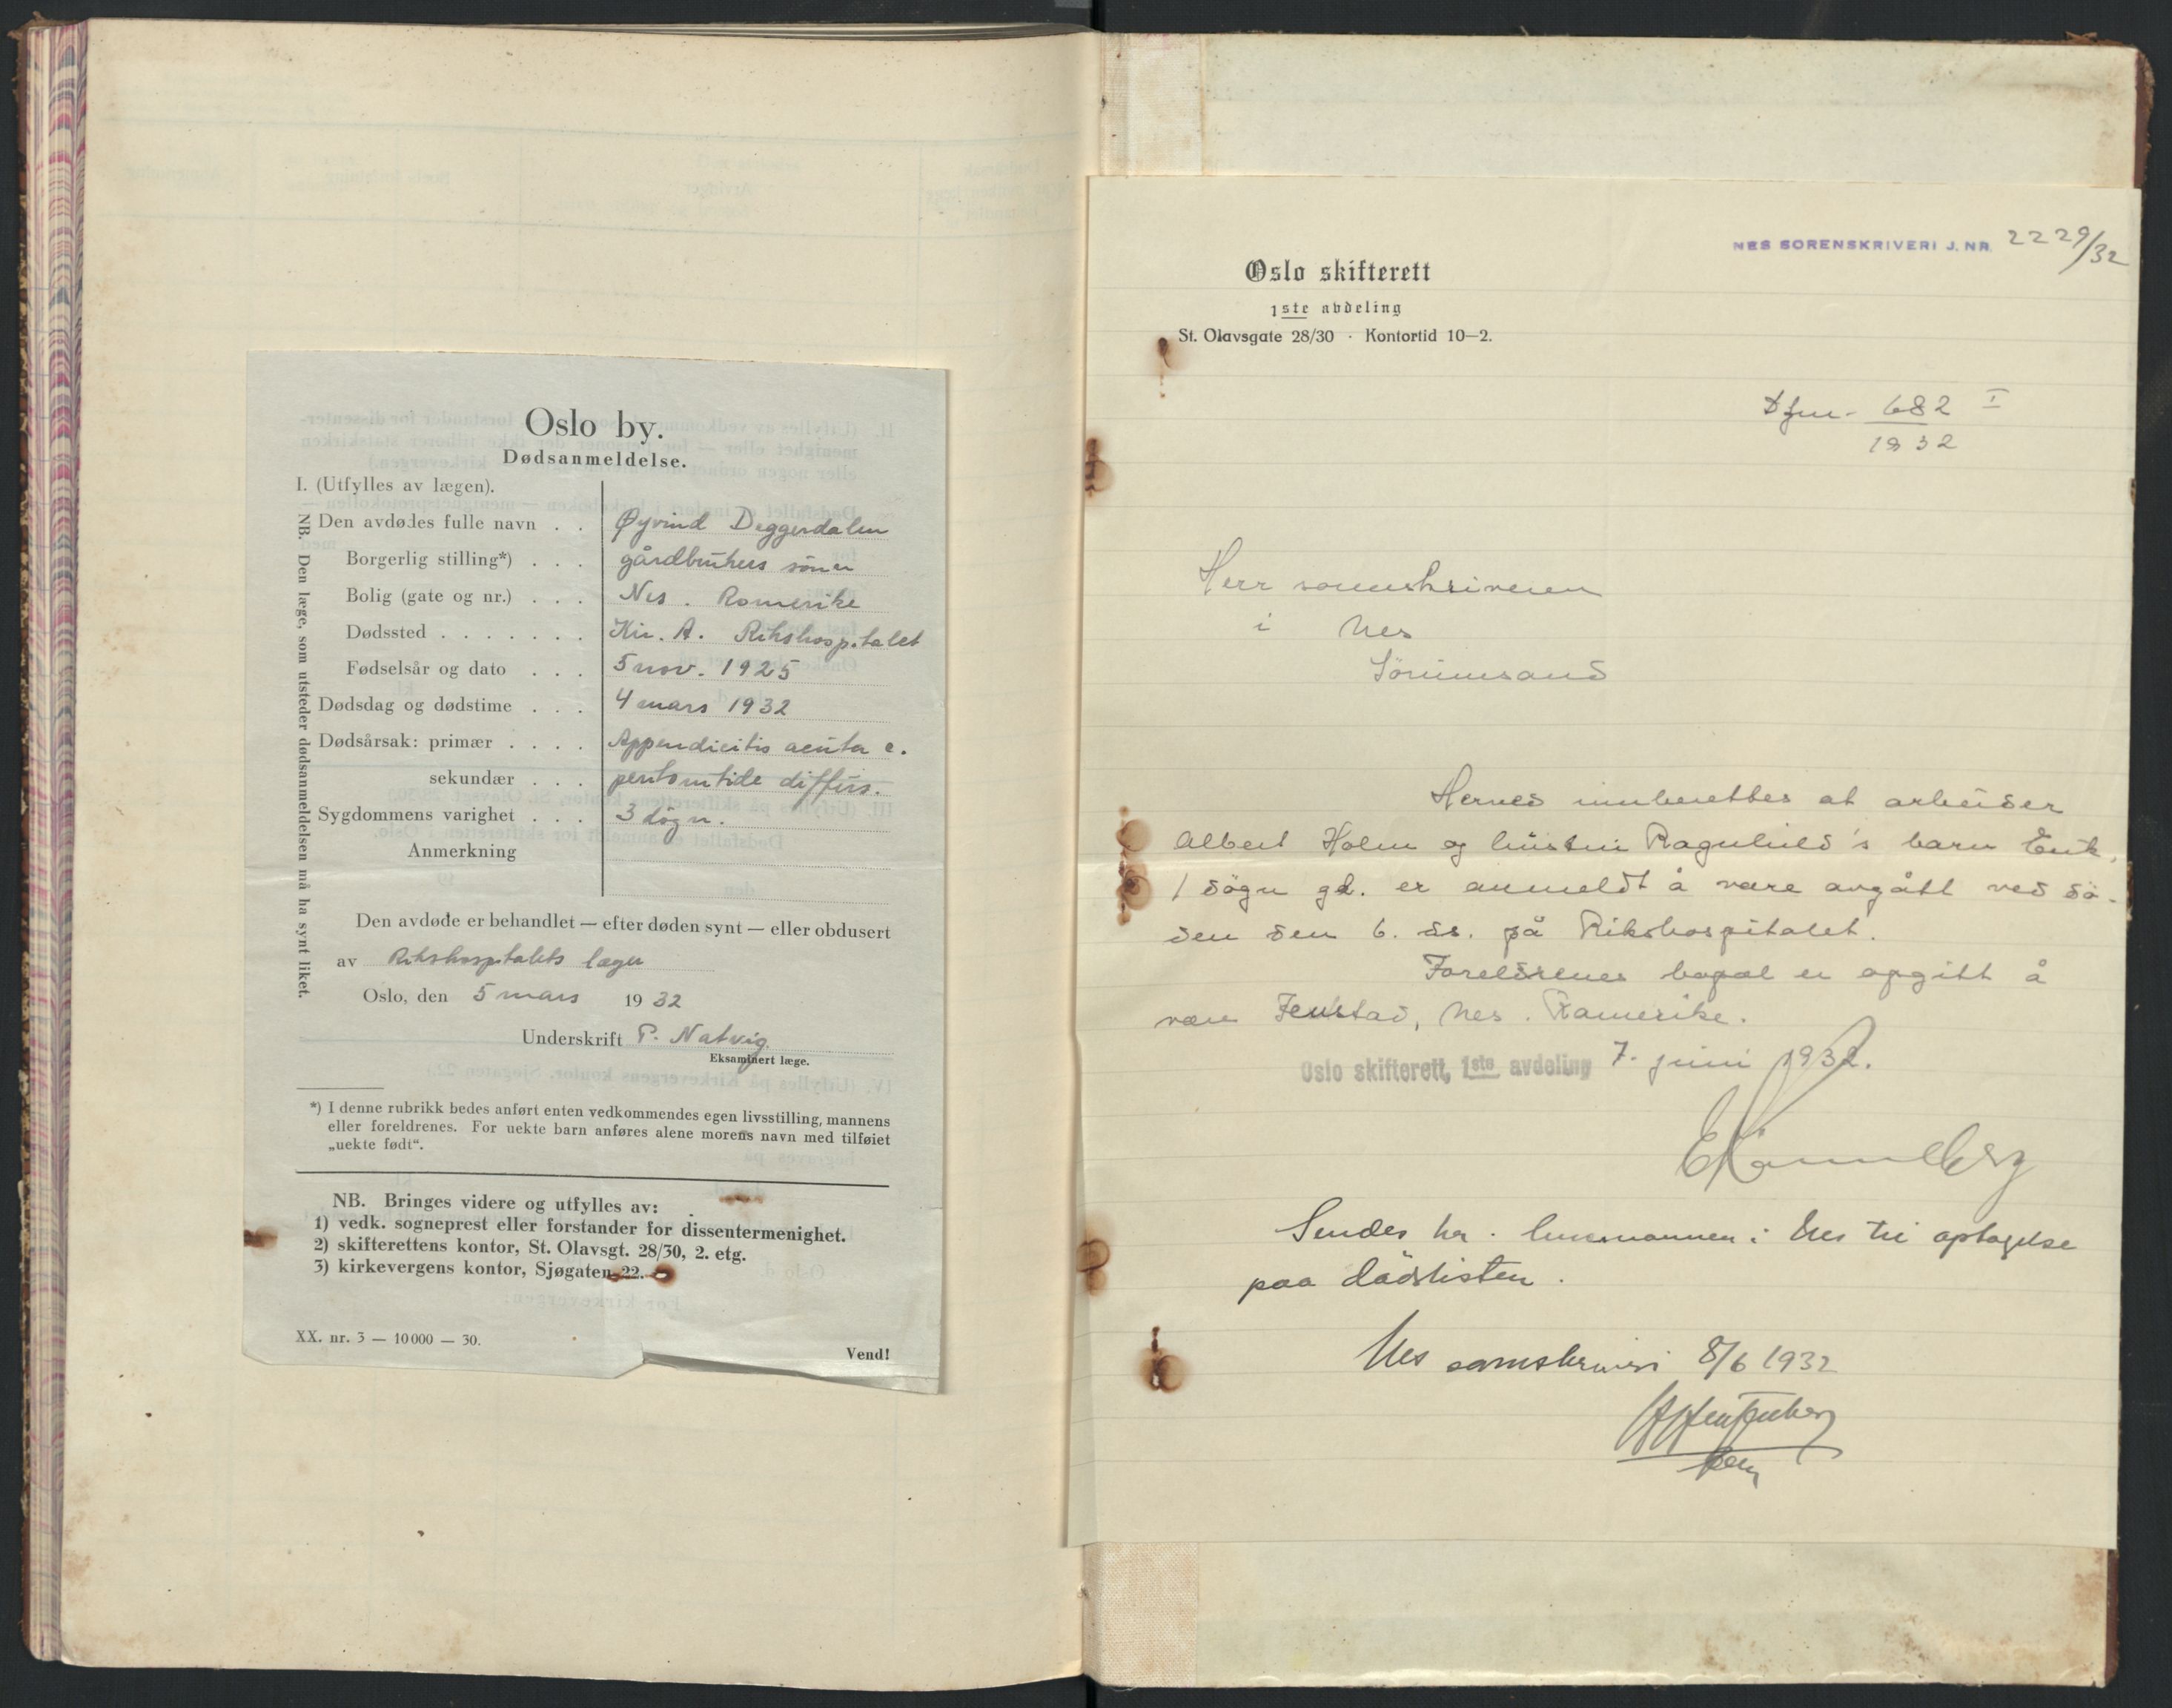 Oslo by.
Dødsanmeldelse.
I. (Utfylles av lægen).
NB. Den læge, som utsteder dødsanmeldelsen må ha synt liket.
Den avdødes fulle navn . . Øyvind Deggerdalen
Borgerlig stilling*) . . . gårdbrukers sönn
Bolig (gate og nr.) . . . Nes. Romerike
Dødssted . . . . . . . Kir. A. Rikshospitalet
Fødselsår og dato . . . 5 nov. 1925
Dødsdag og dødstime . . . 4 mars 1932
Dødsårsak: primær . . . . Appendicitis acuta c.
sekundær . . . peritonitide diffus.
Sygdommens varighet . . . 3 døgn.
Anmerkning
Den avdøde er behandlet — efter døden synt — eller obdusert
av Rikshospitalets læger
Oslo, den 5 mars 1932
Underskrift P. Natvig
Eksaminert læge.
*) I denne rubrikk bedes anført enten vedkommendes egen livsstilling, mannens
eller foreldrenes. For uekte barn anføres alene morens navn med tilføiet
„uekte født“.
NB. Bringes videre og utfylles av:
1) vedk. sogneprest eller forstander for dissentermenighet.
2) skifterettens kontor, St. Olavsgt. 28/30, 2. etg.
3) kirkevergens kontor, Sjøgaten 22.
XX. nr. 3 — 10000 — 30.
Vend!
NES SORENSKRIVERI J. NR. 2229/32
Oslo skifterett
1ste avdeling
St. Olavsgate 28/30 · Kontortid 10—2.
682 I
1932
Herr sorenskriveren
i Nes
Sörumsand
Herved innberettes at arbeider
Albert Holm og hustru Ragnhild's barn Erik,
1 dögn gl. er anmeldt å være avgått ved dö-
den den 6. ds. på Rikshospitalet.
Foreldrenes bopæl er opgitt å
være Fenstad, Nes. Romerike.
Oslo skifterett, 1ste avdeling 7. juni 1932.
Sendes hr. lensmannen i Nes til optagelse
paa dödslisten.
Nes sorenskriveri 8/6 1932